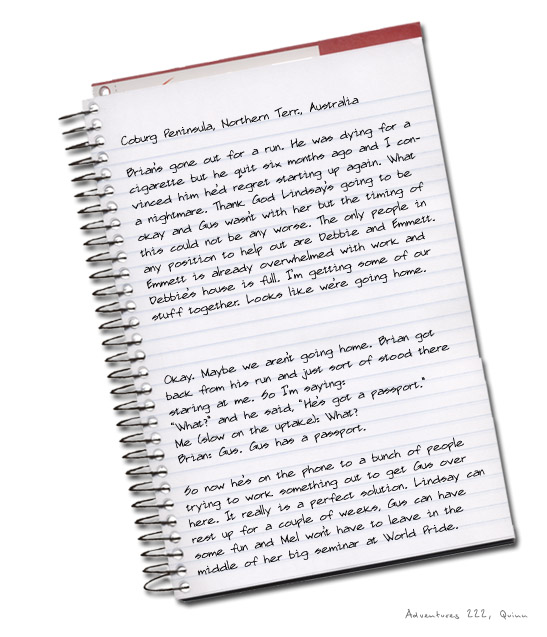 Coburg Peninsula, Northern Terr., Australia
Brian's gone out for a run. He was dying for a
cigarette but he quit six months ago and I con-
vinced him he'd regret starting up again. What
a nightmare. Thank God Lindsay's going to be
okay and Gus wasn't with her but the timing of
this could not be any worse. The only people in
any position to help out are Debbie and Emmett.
Emmett is already overwhelmed with work and
Debbie's house is full. I'm getting some of our
stuff together. Looks like we're going home.
Okay. Maybe we aren't going home. Brian got
back from his run and just sort of stood there
staring at me. So I'm saying:
"What?" and he said, "He's got a passport."
Me (slow on the uptake): What?
Brian: Gus. Gus has a passport.
So now he's on the phone to a bunch of people
trying to work something out to get Gus over
here. It really is a perfect solution. Lindsay can
rest up for a couple of weeks, Gus can have
some fun and Mel won't have to leave in the
middle of her big seminar at World Pride.
Adventures 222, Quinn